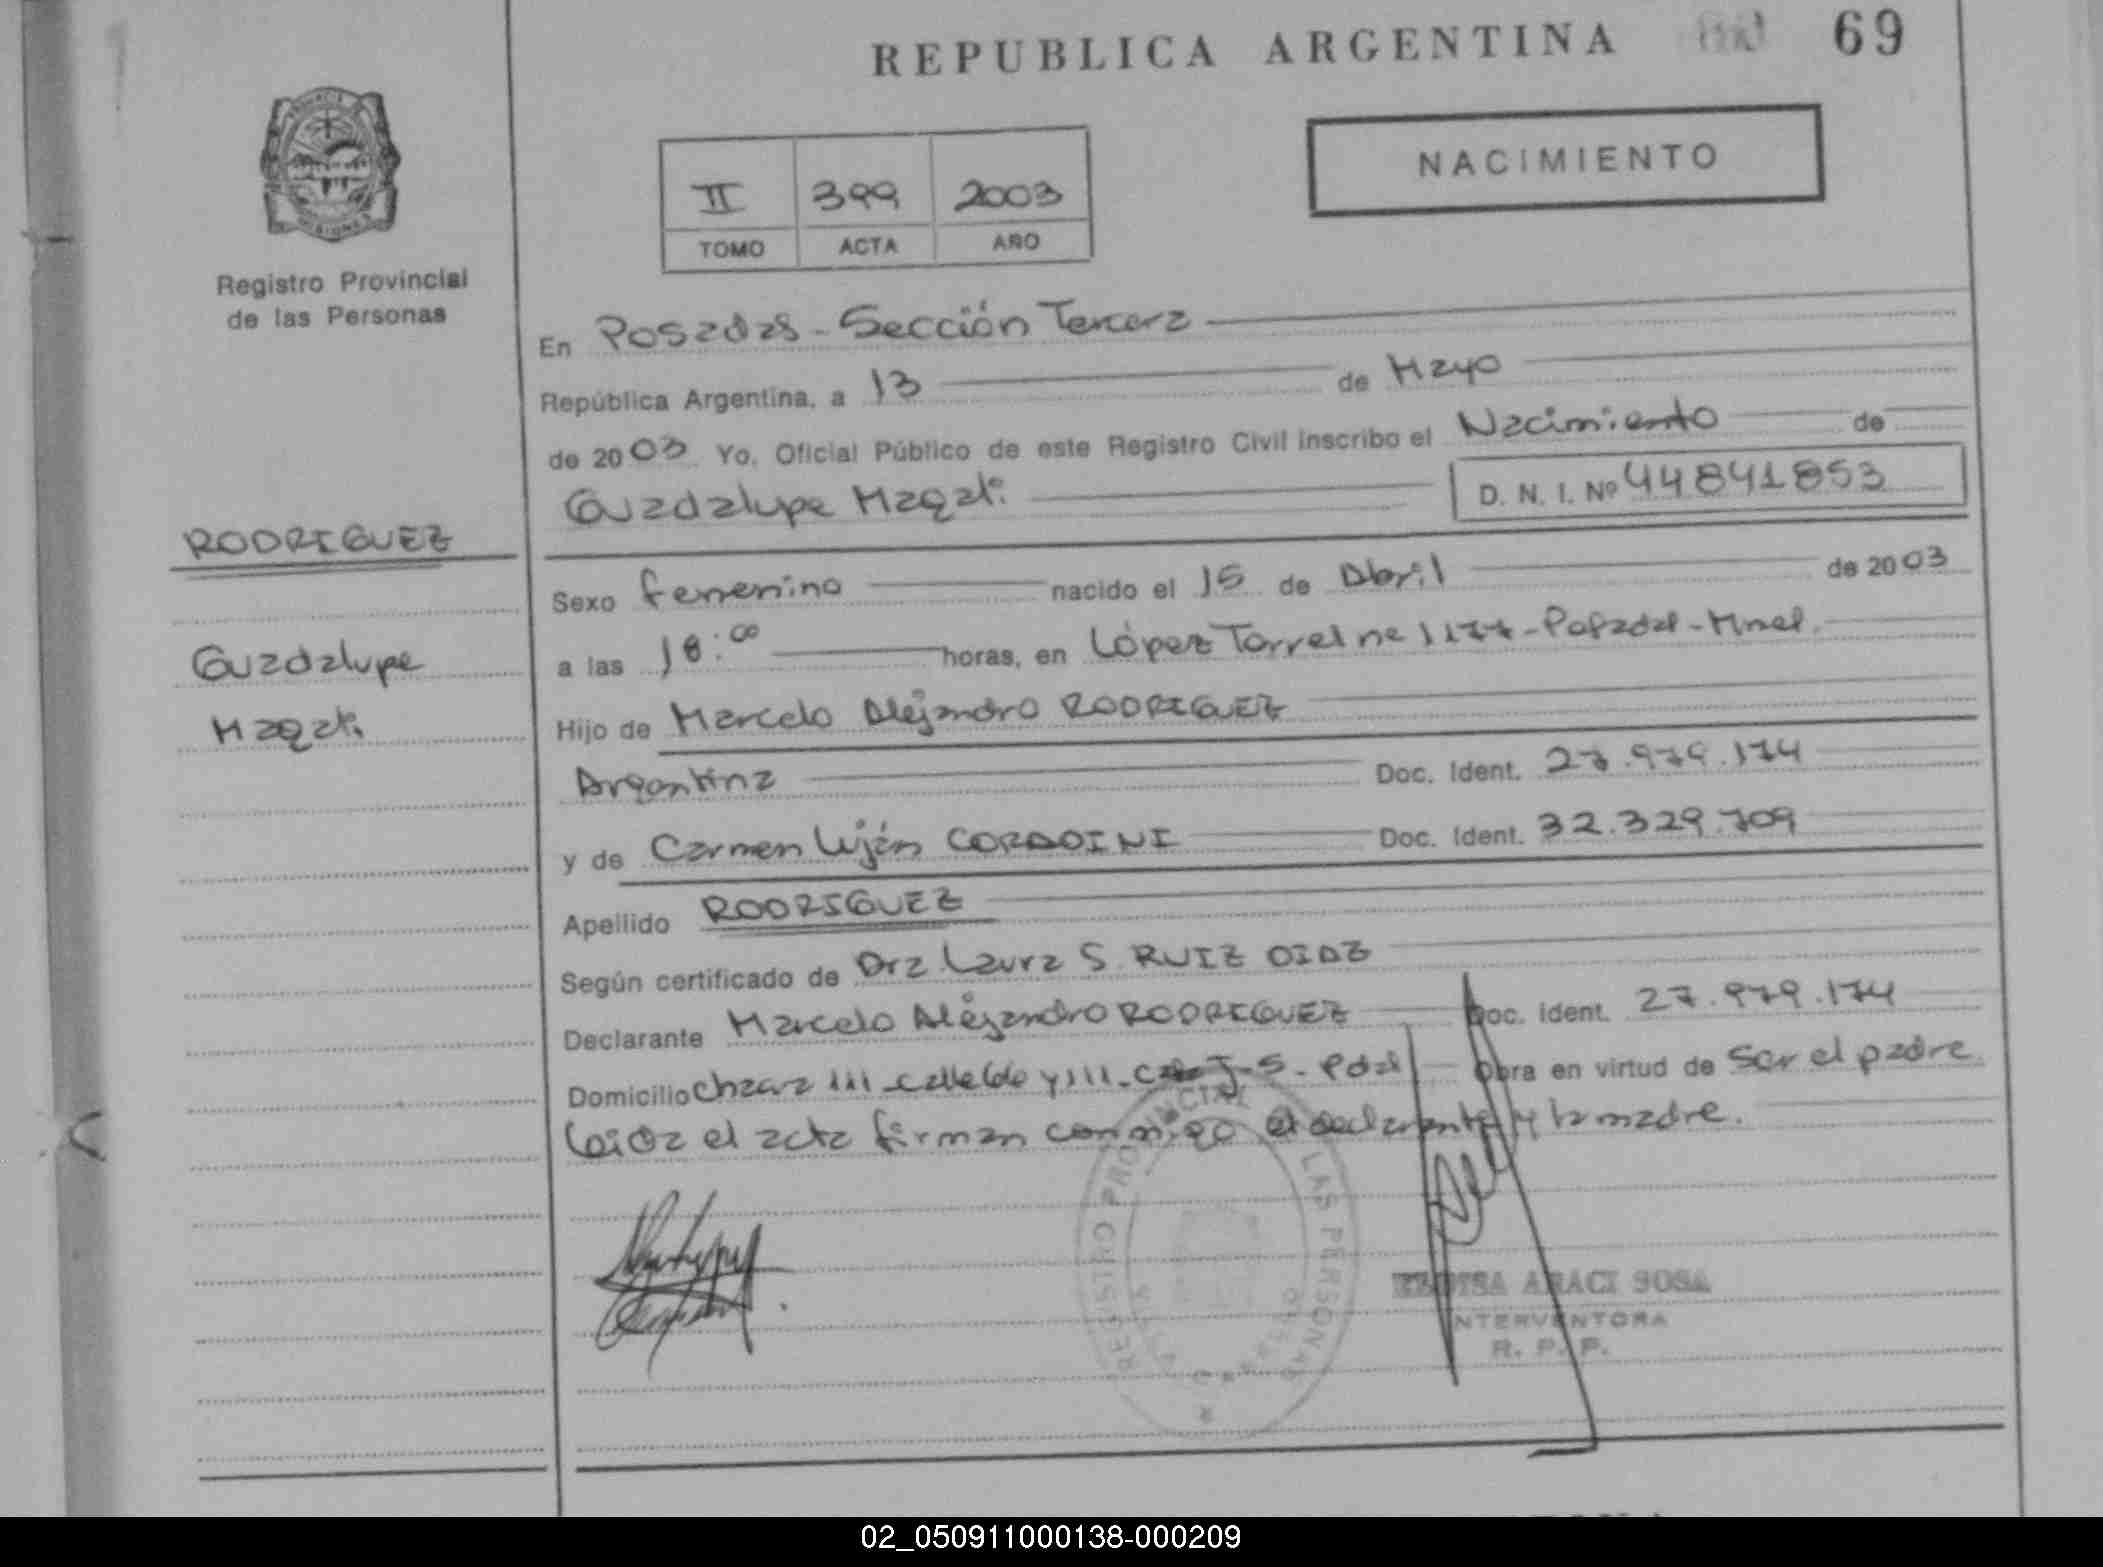 REPUBLICA ARGENTINA 69
NACIMIENTO
II 399 2003
TOMO ACTA AÑO
Registro Provincial
de las Personas
En Posadas - Sección Tercera
República Argentina, a 13 de Mayo
de 2003 Yo, Oficial Público de este Registro Civil inscribo el Nacimiento de
Guadalupe Magalí
D. N. I. Nº 44841853
RODRIGUEZ
Guadalupe
Magalí
Sexo femenino nacido el 15 de Abril de 2003
a las 18:00 horas, en López Torres nº 1177 - Posadas - Mnes.
Hijo de Marcelo Alejandro RODRIGUEZ
Argentina Doc. Ident. 27.979.174
y de Carmen Luján Doc. Ident. 32.329.709
Apellido RODRIGUEZ
Según certificado de Dra Laura S. RUIZ DIAZ
Declarante Marcelo Alejandro RODRIGUEZ Doc. Ident. 27.979.174
Domicilio Chacra 111 - calle y 111 - Pdas Obra en virtud de ser el padre.
Leída el acta firman conmigo el declarante y la madre.
REGISTRO PROVINCIAL LAS PERSONAS
ELOISA ARACI SOSA
INTERVENTORA
R. P. P.
02_050911000138-000209